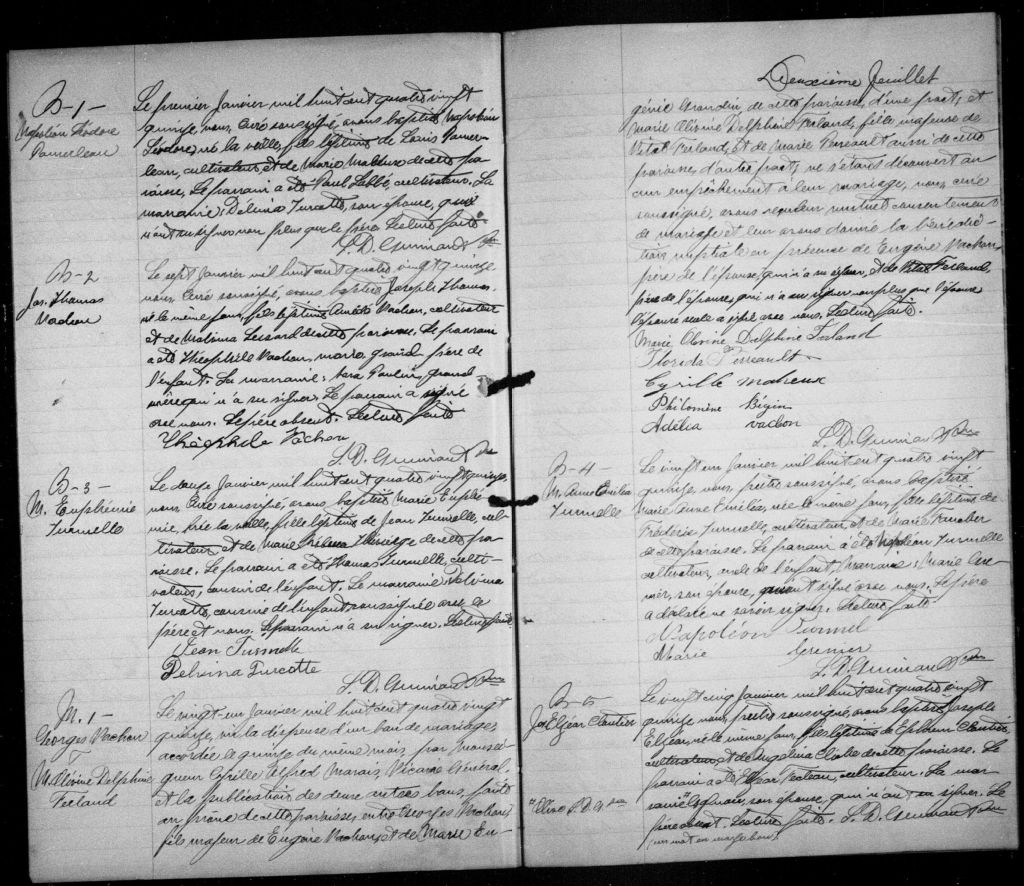 B-1-
Napoléon Théodore
Pomerleau
Le premier Janvier mil huit cent quatre vingt
quinze, nous, Curé soussigné, avons baptisé Napoléon
Théodore, né la veille, fils légitime de Louis Pomer-
leau, cultivateur, et de Marie Maheux de cette pa-
roisse. Le parrain a été Paul Labbé, cultivateur. La
marraine, Délvina Turcotte, son épouse, qui
n'ont su signer non plus que le père. Lecture faite.
L. D. Guimard Ptre
B-2
Jos. Thomas
Vachon
Le sept Janvier mil huit cent quatre vingt quinze
nous, Curé soussigné, avons baptisé Joseph Thomas,
né le même jour, fils légitime Vachon, cultivateur
et de Malvina Lessard de cette paroisse. Le parrain
a été Théophile Vachon, grand père de
l'enfant. La marraine, Paulin, grand
mère qui n'a su signer. Le parrain a signé
avec nous. Le père absent. Lecture faite
Théophile Vachon
L. D. Guimard Ptre
B-3
M. Euphémie
Turmelle
Le douze Janvier mil huit cent quatre vingt quinze,
nous, Curé soussigné, avons baptisé Marie Euphé-
mie, née la veille, fille légitime de Jean Turmelle, cul-
tivateur, et de Marie Thivierge de cette pa-
roisse. Le parrain a été Thomas Turmelle, culti-
vateur, cousin de l'enfant. La marraine Pelvina
Turcotte, cousine de l'enfant soussignée avec le
père et nous. Le parrain n'a su signer. Lecture faite.
Jean Turmelle
Pelvina Turcotte
L. D. Guimard Ptre
M. 1-
Georges Vachon
&
M. Olivine Delphine
Ferland
Le vingt-un Janvier mil huit cent quatre vingt
quinze, vu la dispense d'un ban de mariage,
accordée le quinze du même mois, par Monsei-
gneur Cyrille Alfred Marois, Vicaire Général,
et la publication des deux autres bans, faite
au prône de cette paroisse, entre Georges Vachon,
fils majeur de Eugène Vachon, et de Marie Eu-
Deuxième feuillet
génie Grondin de cette paroisse, d'une part, et
Marie Olivine Delphine Ferland, fille majeure de
Vital Ferland, et de Marie Perreault aussi de cette
paroisse, d'autre part; ne s'étant découvert au-
cun empêchement à leur mariage, nous, curé
soussigné, avons reçu leur mutuel consentement
de mariage et leur avons donné la bénédic-
tion nuptiale en présence de Eugène Vachon,
père de l'époux, qui n'a su signer, et de Vital Ferland,
père de l'épouse, qui n'a su signer non plus que l'époux
l'épouse seule a signé avec nous. Lecture faite.
Marie Olivine Delphine Ferland
Florida Perreault
Cyrille Maheux
Philomène Bégin
Adélia Vachon
L. D. Guimard Ptre
B-4
M. Anne Emélia
Turmelle
Le vingt un Janvier mil huit cent quatre vingt
quinze, nous, prêtre soussigné, avons baptisé
Marie Anne Emélia, née le même jour, fille légitime de
Frédéric Turmelle, cultivateur, et de Marie
de cette paroisse. Le parrain a été Napoléon Turmelle
cultivateur, oncle de l'enfant, Marraine, Marie Gre-
nier, son épouse, qui ont signé avec nous. Le père
a déclaré ne savoir signer. Lecture faite.
Napoléon Turmel
Marie Grenier
L. D. Guimard Ptre
B-5
Jos. Elzéar Cloutier
Le vingt cinq Janvier mil huit cent quatre vingt
quinze nous, prêtre soussigné, avons baptisé Joseph
Elzéar, né le même jour, fils légitime de Cloutier,
cultivateur, et de Angelina Cliche de cette paroisse. Le
parrain a été Elzéar, cultivateur. La mar-
raine, son épouse, qui n'ont su signer. Le
père absent. Lecture faite. L. D. Guimard Ptre
(un mot en marge bon).